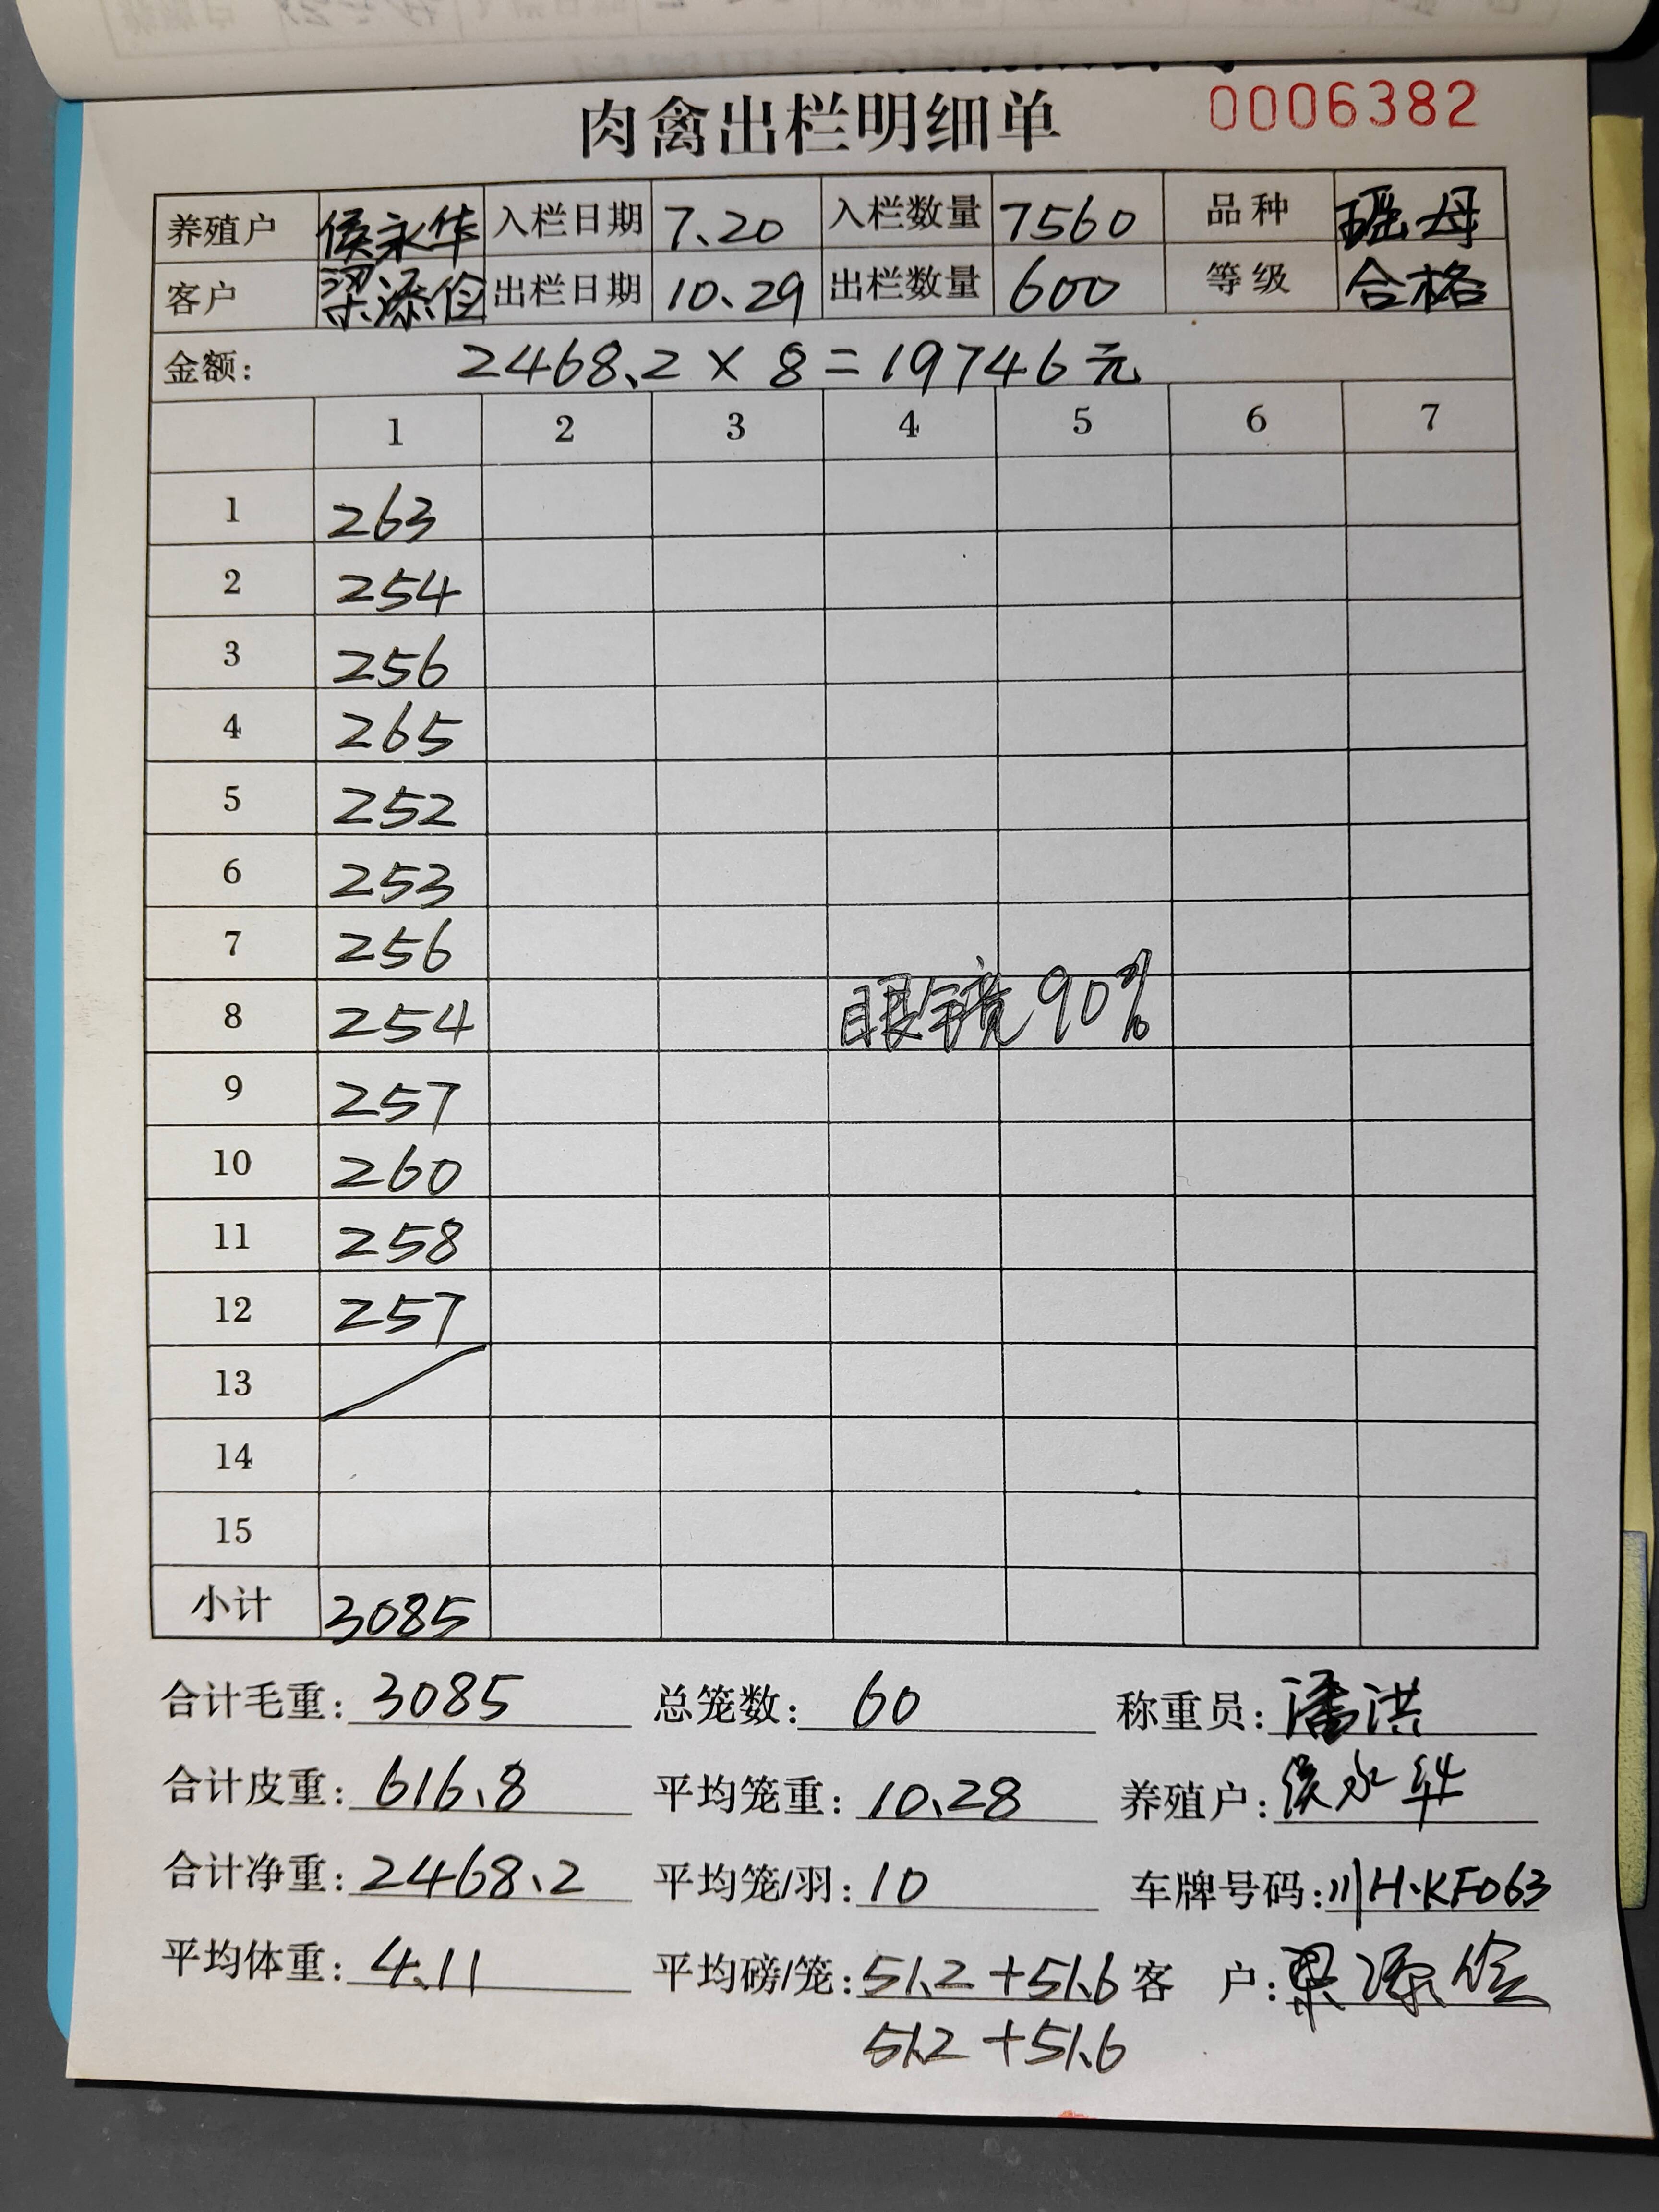 肉禽出栏明细单 0006382
养殖户 侯永华 入栏日期 7.20 入栏数量 7560 品种 瑶母
客户 梁添俭 出栏日期 10.29 出栏数量 600 等级 合格
金额: 2468.2 × 8 = 19746元
1 2 3 4 5 6 7
1 263
2 254
3 256
4 265
5 252
6 253
7 256
8 254 眼镜90%
9 257
10 260
11 258
12 257
13
14
15
小计 3085
合计毛重: 3085 总笼数: 60 称重员: 潘洪
合计皮重: 616.8 平均笼重: 10.28 养殖户: 侯永华
合计净重: 2468.2 平均笼/羽: 10 车牌号码: 川H·KF063
平均体重: 4.11 平均磅/笼: 51.2+51.6 客 户: 梁添俭
51.2+51.6